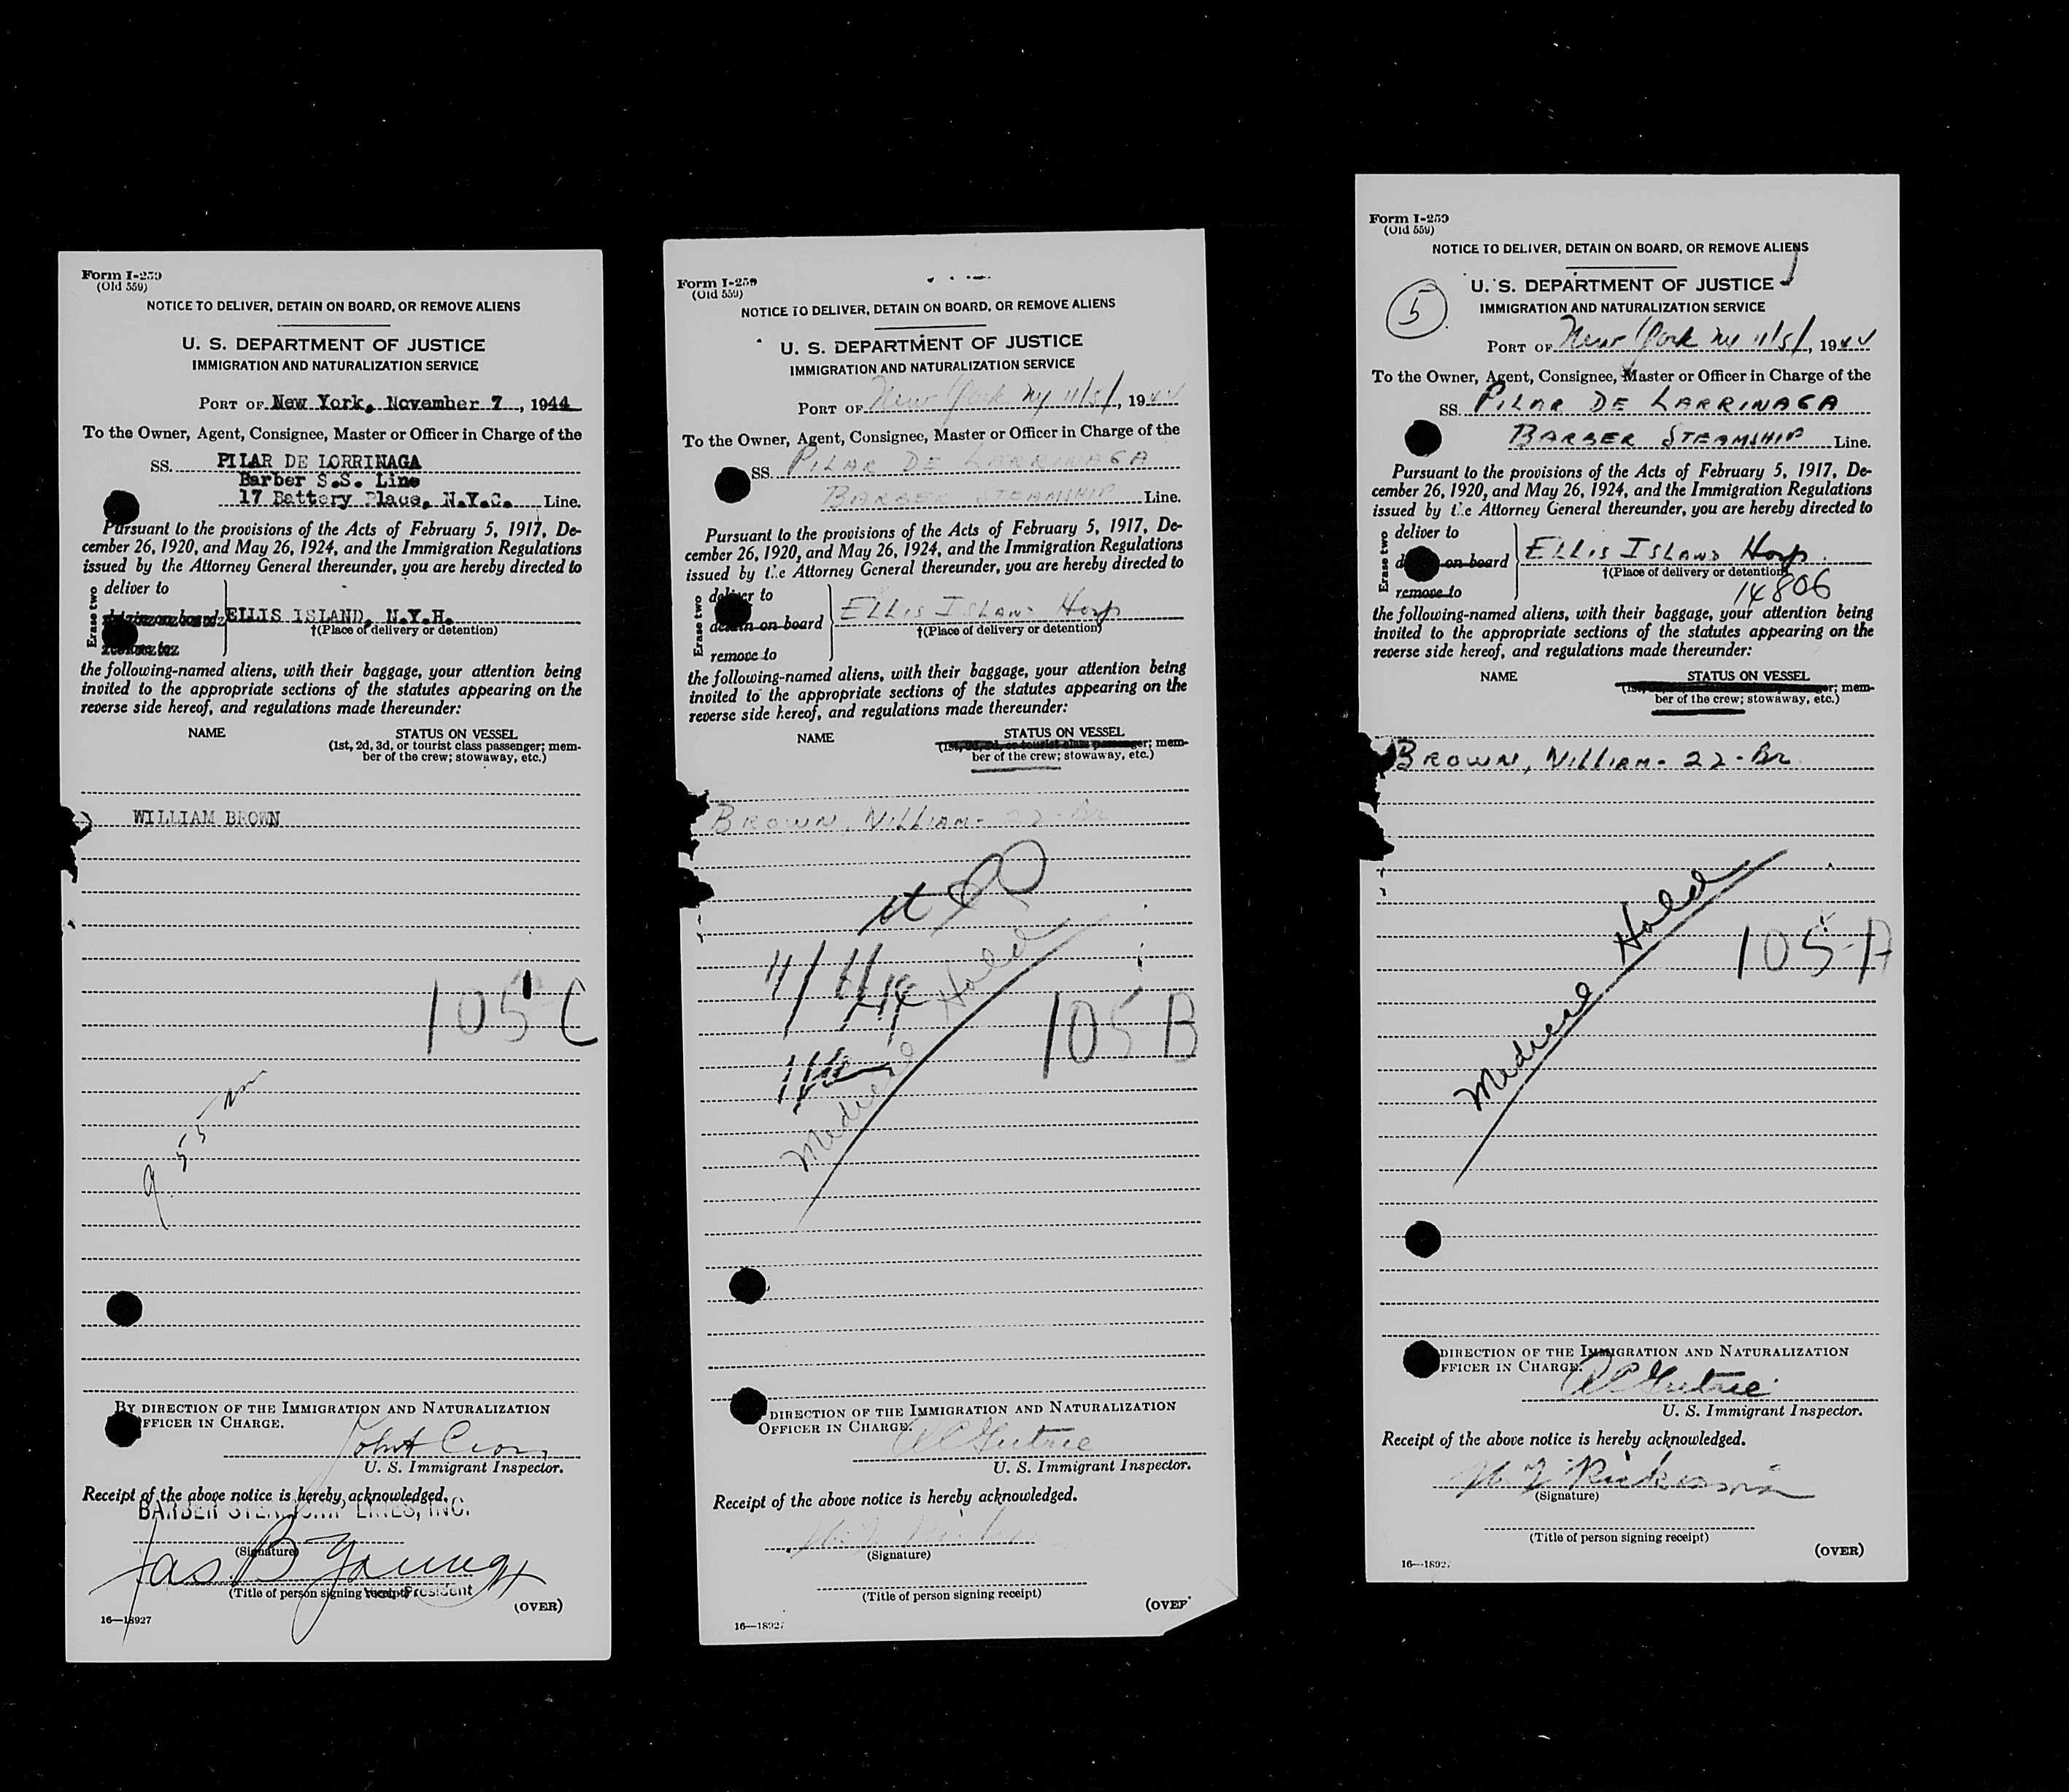 Form I-259
(Old 559)
NOTICE TO DELIVER, DETAIN ON BOARD, OR REMOVE ALIENS
U. S. DEPARTMENT OF JUSTICE
IMMIGRATION AND NATURALIZATION SERVICE
PORT OF New York, November 7, 1944
To the Owner, Agent, Consignee, Master or Officer in Charge of the
SS. PILAR DE LORRINAGA
Barber S.S. Line
17 Battery Place, N.Y.C. Line.
Pursuant to the provisions of the Acts of February 5, 1917, De-
cember 26, 1920, and May 26, 1924, and the Immigration Regulations
issued by the Attorney General thereunder, you are hereby directed to
Erase two
deliver to
ELLIS ISLAND, N.Y.H.
†(Place of delivery or detention)
the following-named aliens, with their baggage, your attention being
invited to the appropriate sections of the statutes appearing on the
reverse side hereof, and regulations made thereunder:
NAME STATUS ON VESSEL
(1st, 2d, 3d, or tourist class passenger; mem-
ber of the crew; stowaway, etc.)
WILLIAM BROWN
105 C
9 55
BY DIRECTION OF THE IMMIGRATION AND NATURALIZATION
OFFICER IN CHARGE.
U. S. Immigrant Inspector.
Receipt of the above notice is hereby acknowledged.
BARBER STEAMSHIP LINES, INC.
(Signature)
Jas B Young
(Title of person signing receipt) President
16—18927
(OVER)
Form I-259
(Old 559)
NOTICE TO DELIVER, DETAIN ON BOARD, OR REMOVE ALIENS
U. S. DEPARTMENT OF JUSTICE
IMMIGRATION AND NATURALIZATION SERVICE
PORT OF New York NY 11/5/, 1944
To the Owner, Agent, Consignee, Master or Officer in Charge of the
SS. PILAR DE LARRINAGA
BARBER STEAMSHIP Line.
Pursuant to the provisions of the Acts of February 5, 1917, De-
cember 26, 1920, and May 26, 1924, and the Immigration Regulations
issued by the Attorney General thereunder, you are hereby directed to
Erase two
deliver to
detain on board
remove to
ELLIS ISLAND Hosp
†(Place of delivery or detention)
the following-named aliens, with their baggage, your attention being
invited to the appropriate sections of the statutes appearing on the
reverse side hereof, and regulations made thereunder:
NAME STATUS ON VESSEL
(1st, 2d, 3d, or tourist class passenger; mem-
ber of the crew; stowaway, etc.)
BROWN, WILLIAM - 22 - Br
11/6/44
Medical Hold
105 B
DIRECTION OF THE IMMIGRATION AND NATURALIZATION
OFFICER IN CHARGE.
U. S. Immigrant Inspector.
Receipt of the above notice is hereby acknowledged.
(Signature)
(Title of person signing receipt)
16—18927
(OVER
Form I-259
(Old 559)
NOTICE TO DELIVER, DETAIN ON BOARD, OR REMOVE ALIENS
5
U. S. DEPARTMENT OF JUSTICE
IMMIGRATION AND NATURALIZATION SERVICE
PORT OF New York NY 11/5/, 1944
To the Owner, Agent, Consignee, Master or Officer in Charge of the
SS. PILAR DE LARRINAGA
BARBER STEAMSHIP Line.
Pursuant to the provisions of the Acts of February 5, 1917, De-
cember 26, 1920, and May 26, 1924, and the Immigration Regulations
issued by the Attorney General thereunder, you are hereby directed to
Erase two
deliver to
on board
remove to
ELLIS ISLAND Hosp.
†(Place of delivery or detention)
14806
the following-named aliens, with their baggage, your attention being
invited to the appropriate sections of the statutes appearing on the
reverse side hereof, and regulations made thereunder:
NAME STATUS ON VESSEL
(1st, mem-
ber of the crew; stowaway, etc.)
BROWN, WILLIAM - 22 - Br
Medical Hold
105-A
DIRECTION OF THE IMMIGRATION AND NATURALIZATION
OFFICER IN CHARGE.
U. S. Immigrant Inspector.
Receipt of the above notice is hereby acknowledged.
(Signature)
(Title of person signing receipt)
16—18927
(OVER)